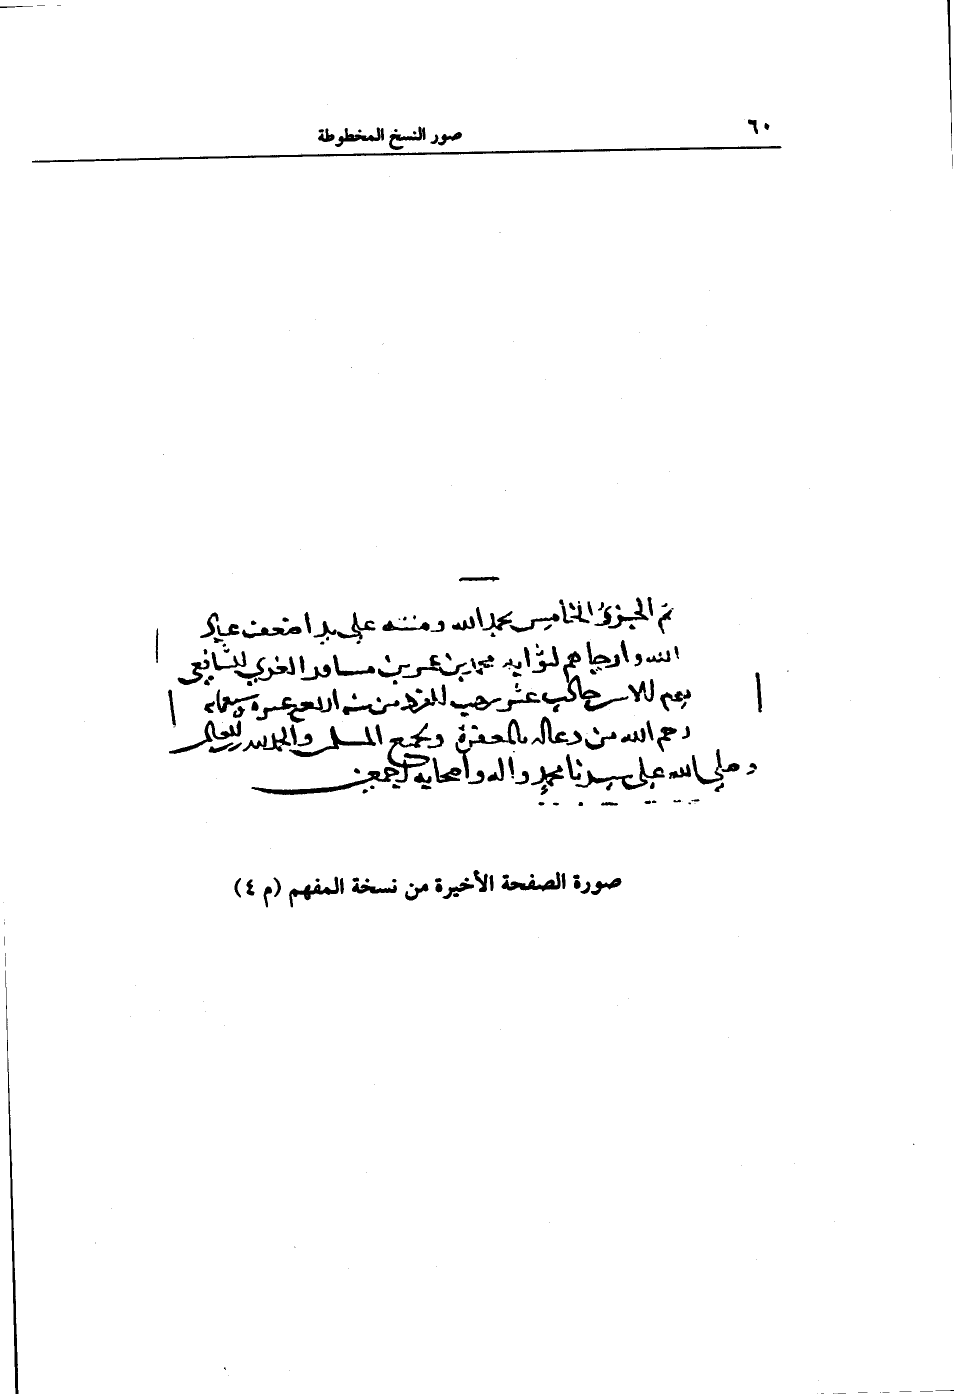 ٦٠
صور النسخ المخطوطة
تم الجزؤ الخامس بحمد الله ومننه على يد اضعف عباد
الله وارجاهم لثوابه محمد بن عمر بن مساور الغزي الشافعي
يوم عشر رجب الفرد من سنه اربع عشره وسبعمايه
رحم الله من دعا له بالمغفرة ولجميع المسلمين والحمد لله رب العالمين
وصلى الله على سيدنا محمد واله واصحابه اجمعين
صورة الصفحة الأخيرة من نسخة المفهم (م ٤)